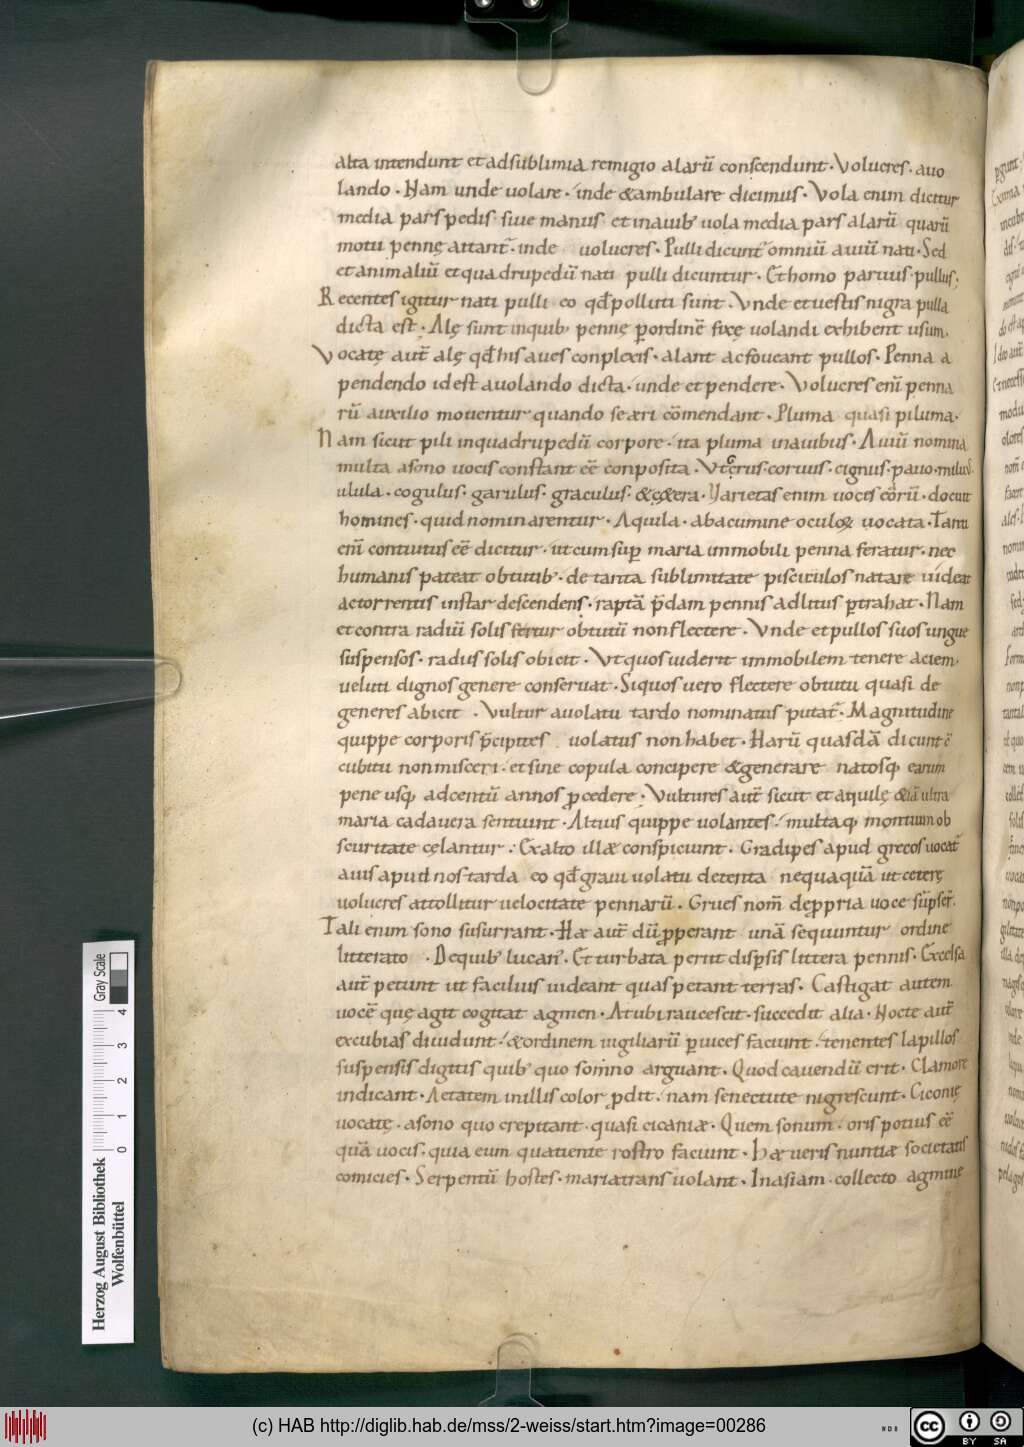 alta intendunt et ad sublimia remigio alarū conscendunt · Volucres · auo
lando · Nam unde uolare · inde & ambulare dicimus · Vola enim dicitur
media pars pedis · siue manus · et in auib; uola media pars alarū quarū
motu pennę attant̄ · inde uolucres · Pulli dicunt̄ omniū auiū nati · Sed
et animaliū et quadrupedū nati pulli dicuntur · Et homo paruus · pullus ·
Recentes igitur nati pulli eo qđ polluti sunt · Vnde et uestis nigra pulla
dicta est · Alę sunt in quib; pennę ꝑ ordinē fixę uolandi exhibent usum ·
Vocatę aut̄ alę qđ his aues conplexis · alant ac foueant pullos · Penna a
pendendo id est a uolando dicta · unde et pendere · Volucres enī penna
rū auxilio mouentur quando se æri cōmendant · Pluma quasi piluma ·
Nam sicut pili in quadrupedū corpore · ita pluma in auibus · Auiū nomina
multa a sono uocis constant eē conposita · Vt grus · coruus · cignus · pauo · miluus
ulula · cogulus · garulus · graculus · & cętera · Varietas enim uocis eōrū · docuit
homines · quid nominarentur · Aquila · ab acumine oculoꝝ uocata · Tanti
enī contuitus eē dicitur · ut cum suꝑ maria immobili penna feratur · nec
humanis pateat obtutib; · de tanta sublimitate pisciculos natare uideat
ac torrentis instar descendens · raptā p̄dam pennis ad litus ꝑtrahat · Nam
et contra radiū solis fertur obtutū non flectere · Vnde et pullos suos ungue
suspensos · radiis solis obicit · Vt quos uiderit immobilem tenere aciem ·
ueluti dignos genere conseruat · Si quos uero flectere obtutu quasi de
generes abicit · Vultur a uolatu tardo nominatus putat̄ · Magnitudine
quippe corporis p̄cipites uolatus non habet · Harū quasdā dicunt ē
cubitu non misceri · et sine copula concipere & generare natosq; earum
pene usq; ad centū annos ꝓcedere · Vultures aut̄ sicut et aquilę & iā ultra
maria cadauera sentiunt · Altius quippe uolantes · multaq; montium ob
scuritate cęlantur · Ex alto illæ conspiciunt · Gradipes apud grecos uocat̄
auis apud nos tarda eo qđ graui uolatu detenta nequaquā ut ceterę
uolucres attollitur uelocitate pennarū · Grues nom̄ de ꝓpria uoce sūpser̄ ·
Tali enim sono susurrant · Hæ aut̄ dū ꝓperant unā sequuntur ordine
litterato · De quib; lucan̄ · Et turbata perit dispersis littera pennis · Excelsa
aut̄ petunt ut facilius uideant quas petant terras · Castigat autem
uocē quę agit cogitat agmen · At ubi raucescit · succedit alia · Nocte aut̄
excubias diuidunt · & ordinem uigiliarū ꝑ uices faciunt · tenentes lapillos
suspensis digitis quib; quo somno arguant · Quod cauendū erit · Clamore
indicant · Aetatem in illis color ꝓdit · nam senectute nigrescunt · Ciconię
uocatę · a sono quo crepitant · quasi cicaniæ · Quem sonum · oris potius eē
quā uocis · quia eum quatiente rostro faciunt · Hæ ueris nuntiæ societatis
comicies · Serpentū hostes · maria transuolant · In asiam · collecto agmine
Herzog August Bibliothek
Wolfenbüttel
0 1 2 3 4
Gray Scale
(c) HAB http://diglib.hab.de/mss/2-weiss/start.htm?image=00286
cc BY SA